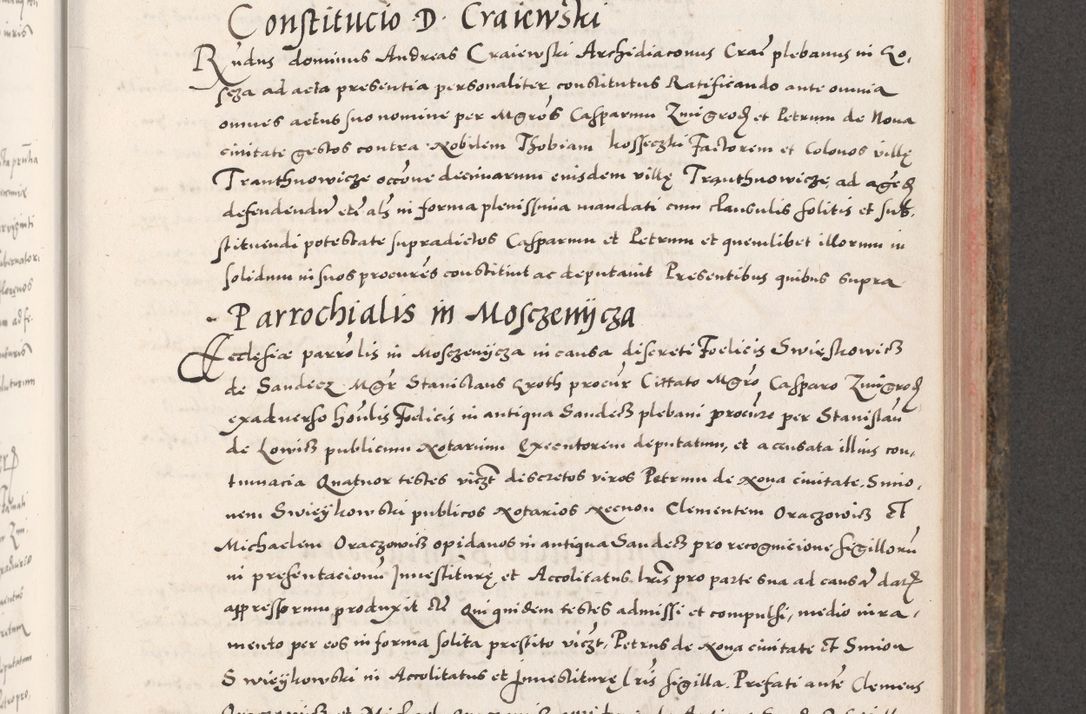 Constitucio D. Craiewski
Rñdus dominus Andreas Craiewski Archidiaconus Crac plebanus in Ko,
ad acta presentia personaliter constitutus Ratificando ante omnia
omnes actus suo nomine per Mgros Casparum Zmigrod et Petrum de Nova
civitate gestos contra Nobilem Thobiam Kosseczki Factorem et Colonos villę
Tranthnowicze occone decimarum eiusdem villę Tranthnowicze, ad
defendendu etc als in forma plenissima mandati cum clausulis solitis et sub,
stituendi potestate supradictos Casparum et Petrum et quemlibet illorum in
solidum in suos procures constituit ac deputavit Presentibus quibus supra
- Parrochialis in Mosczenijcza
Ecclesiæ parrolis in Mosczenijcza in causa discreti Foelicis Swięskowicz
de Sandecz Mgr Stanislaus Groth procur Cittato Mgro Casparo Zmigrod
exadverso honlis Foelicis in antiqua Sandecz plebani procure per Stanislau
de Lowicz publicum Notarium Executorem deputatum, et accusata illius con,
tumacia Quatuor testes viczt discretos viros Petrum de Nova civitate, Simo,
nem Swieykowski publicos Notarios Necnon Clementem Oraczowicz Et
Michaelem Oraczowicz opidanos in antiqua Sandecz pro recognicione sigilloru
in presentacionu Investiturę, et Accolitatus lris pro parte sua ad causam
appressorum produxit Etc Qui quidem testes admissi et compulsi, medio iura,
mento per eos in forma solita prestito viczt, Petrus de Nova civitate Et Simon
Swieykowski in Accolitatus et Investiturę lris sigilla. Prefati aute Clemens